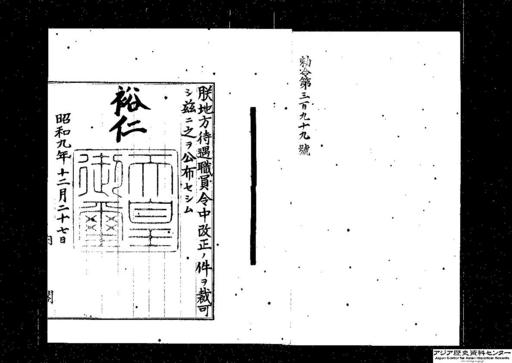 勅令第三百九十九號
朕地方待遇職員令中改正ノ件ヲ裁可
シ茲ニ之ヲ公布セシム
裕仁
天皇
御璽
昭和九年十二月二十七日
内閣
アジア歴史資料センター
Japan Center for Asian Historical Records